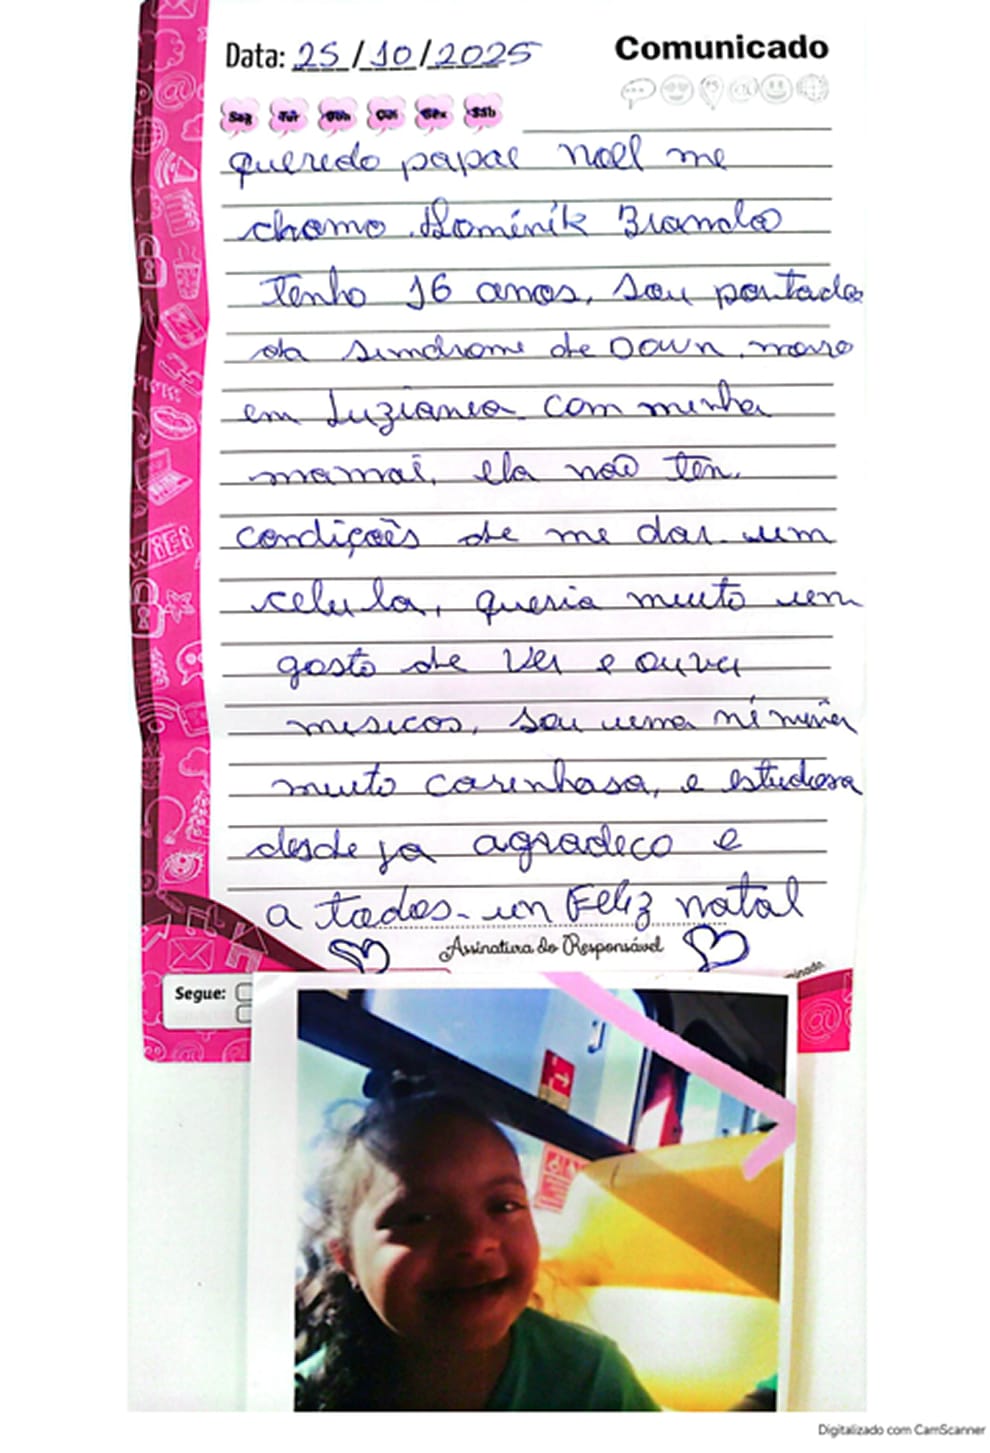 Data: 25/10/2025 Comunicado
Seg Ter Qua Qui Sex Sáb
queredo papae noel me
chamo Doménik Brandão
Tenho 16 anos, Sou portado
da sindrome de Down, moro
em Luziania com minha
mamai, ela não ten.
condiçoẽs de me dar um
celula, queria muito um
gosto de Ver e ouvir
musicos, Sou uma ninina
muito carinhosa, e estudiosa
desde ja agradeco e
a todos um Feliz natal
Assinatura do Responsável
Segue:
WiFi
Digitalizado com CamScanner